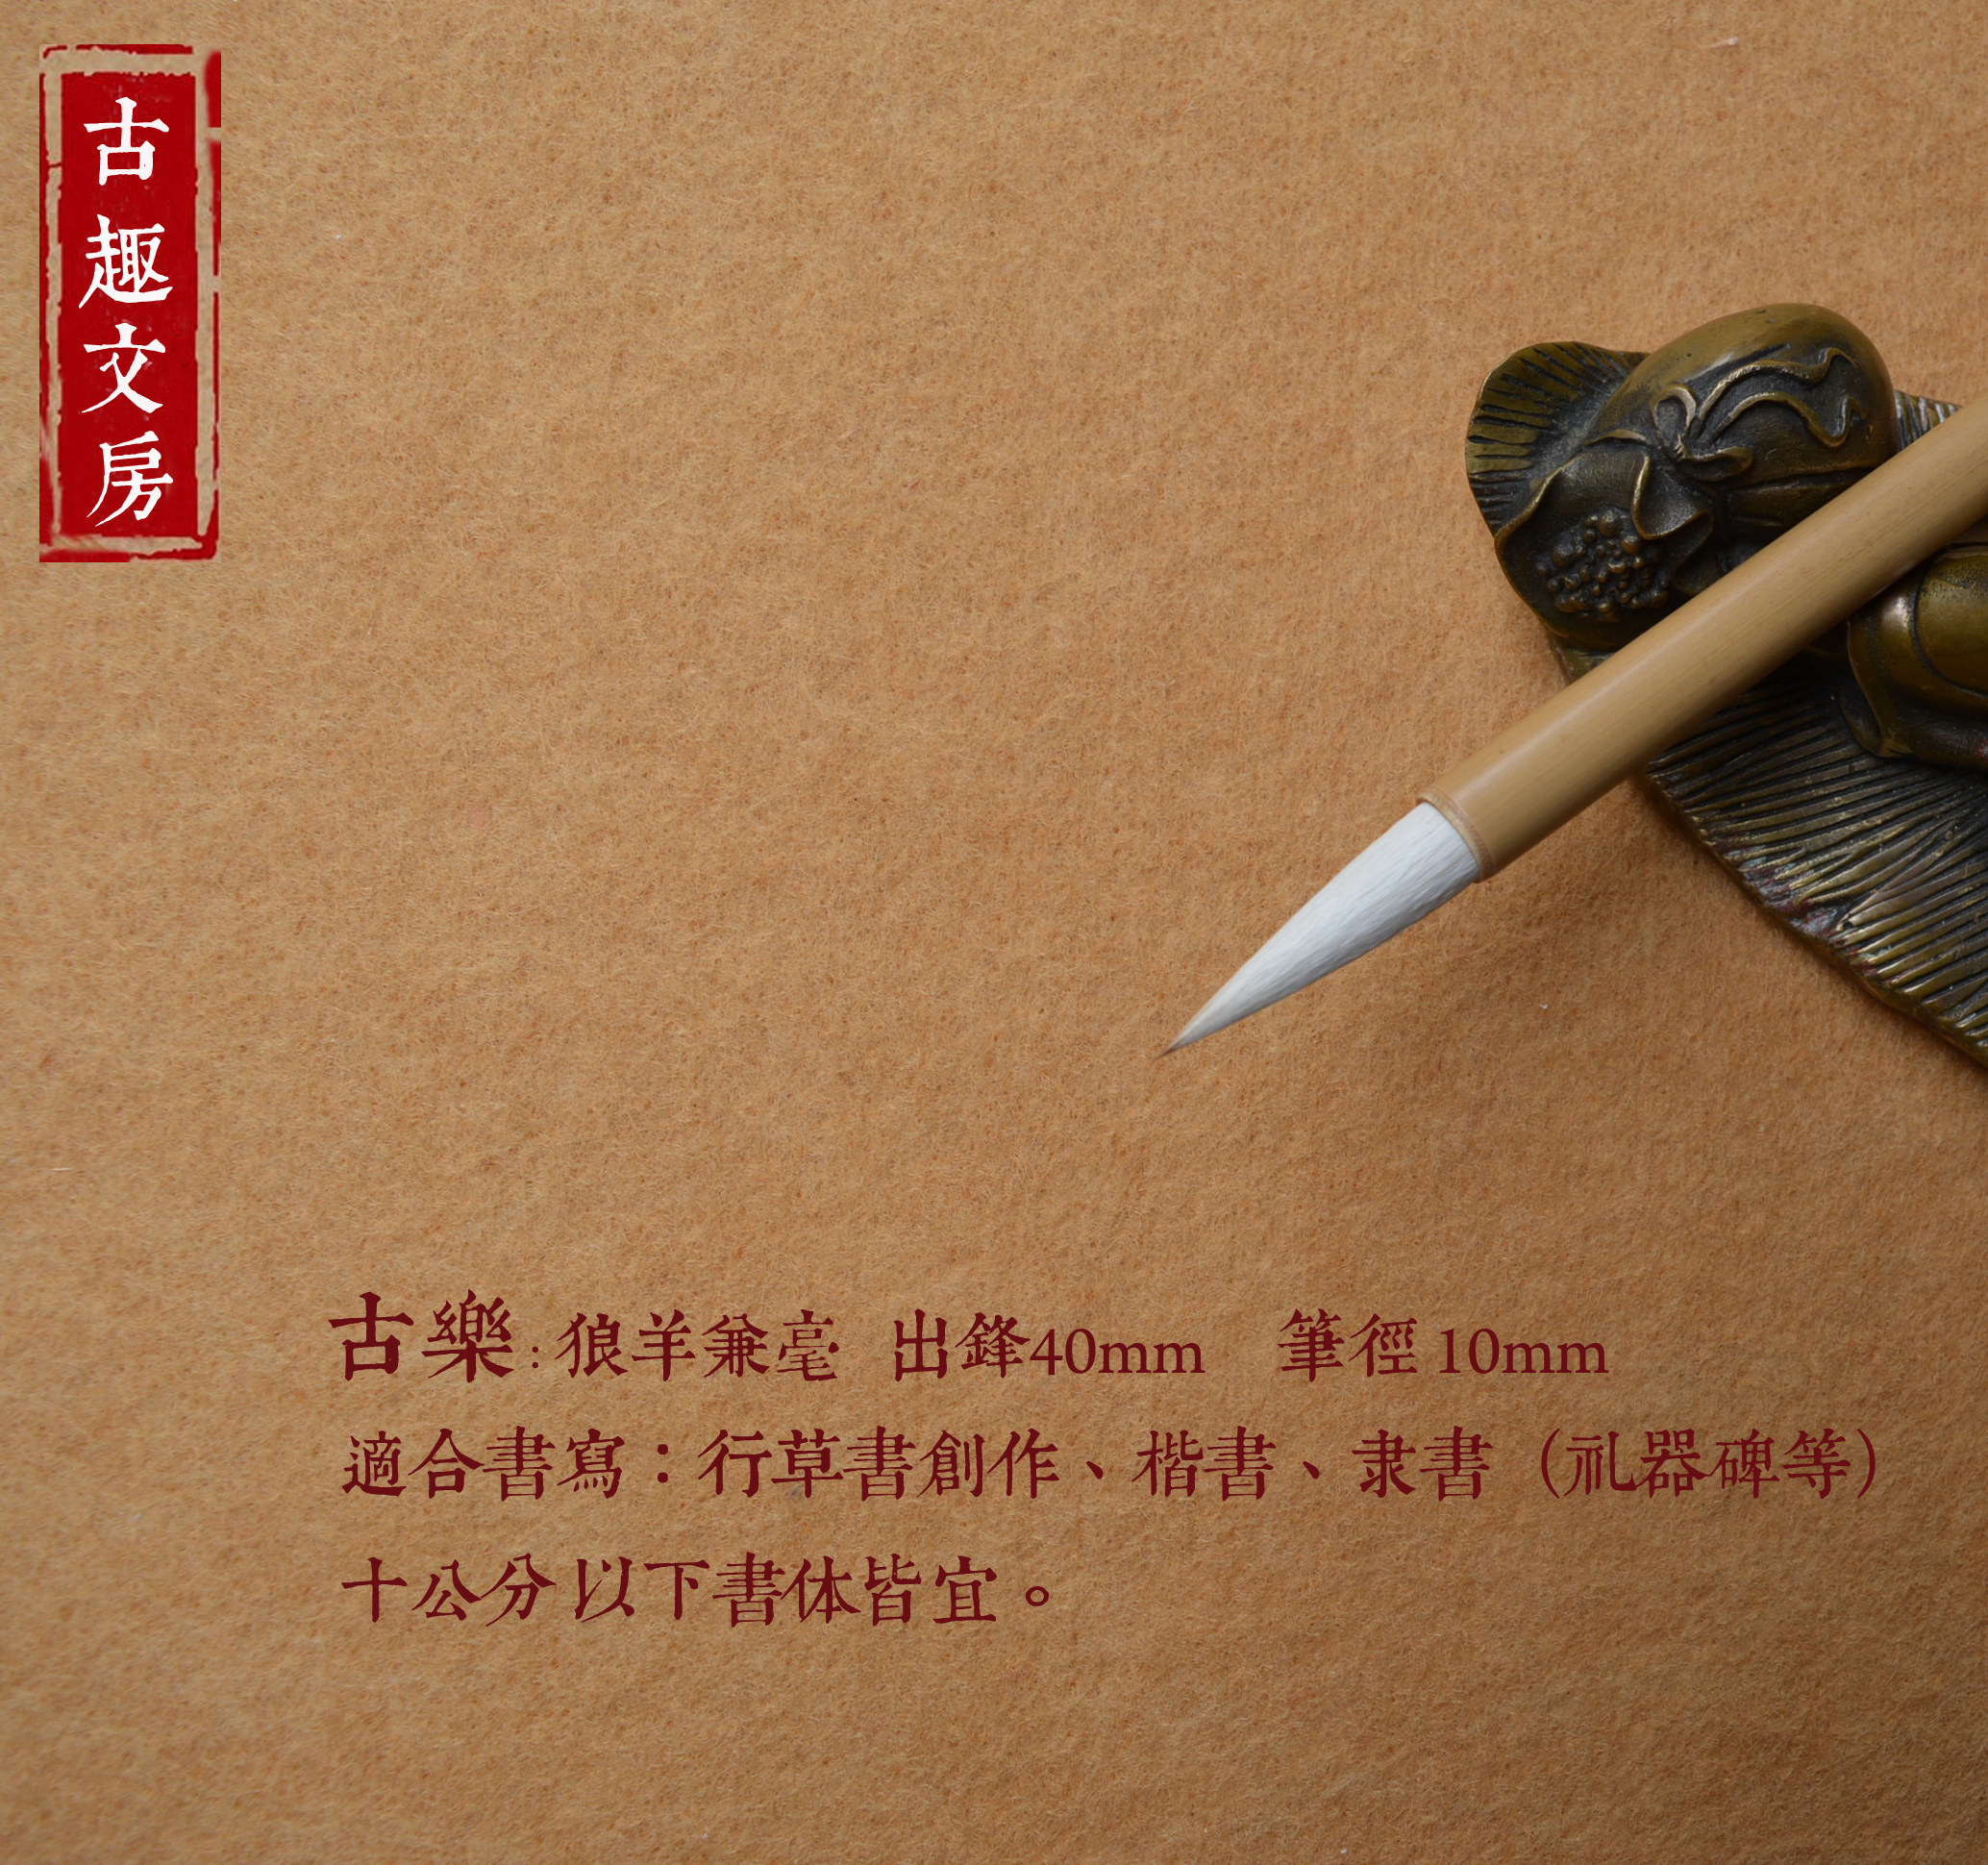 古趣文房
古樂：狼羊兼毫 出鋒40mm 筆徑10mm
適合書寫：行草書創作、楷書、隶書（礼器碑等）
十公分以下書体皆宜。